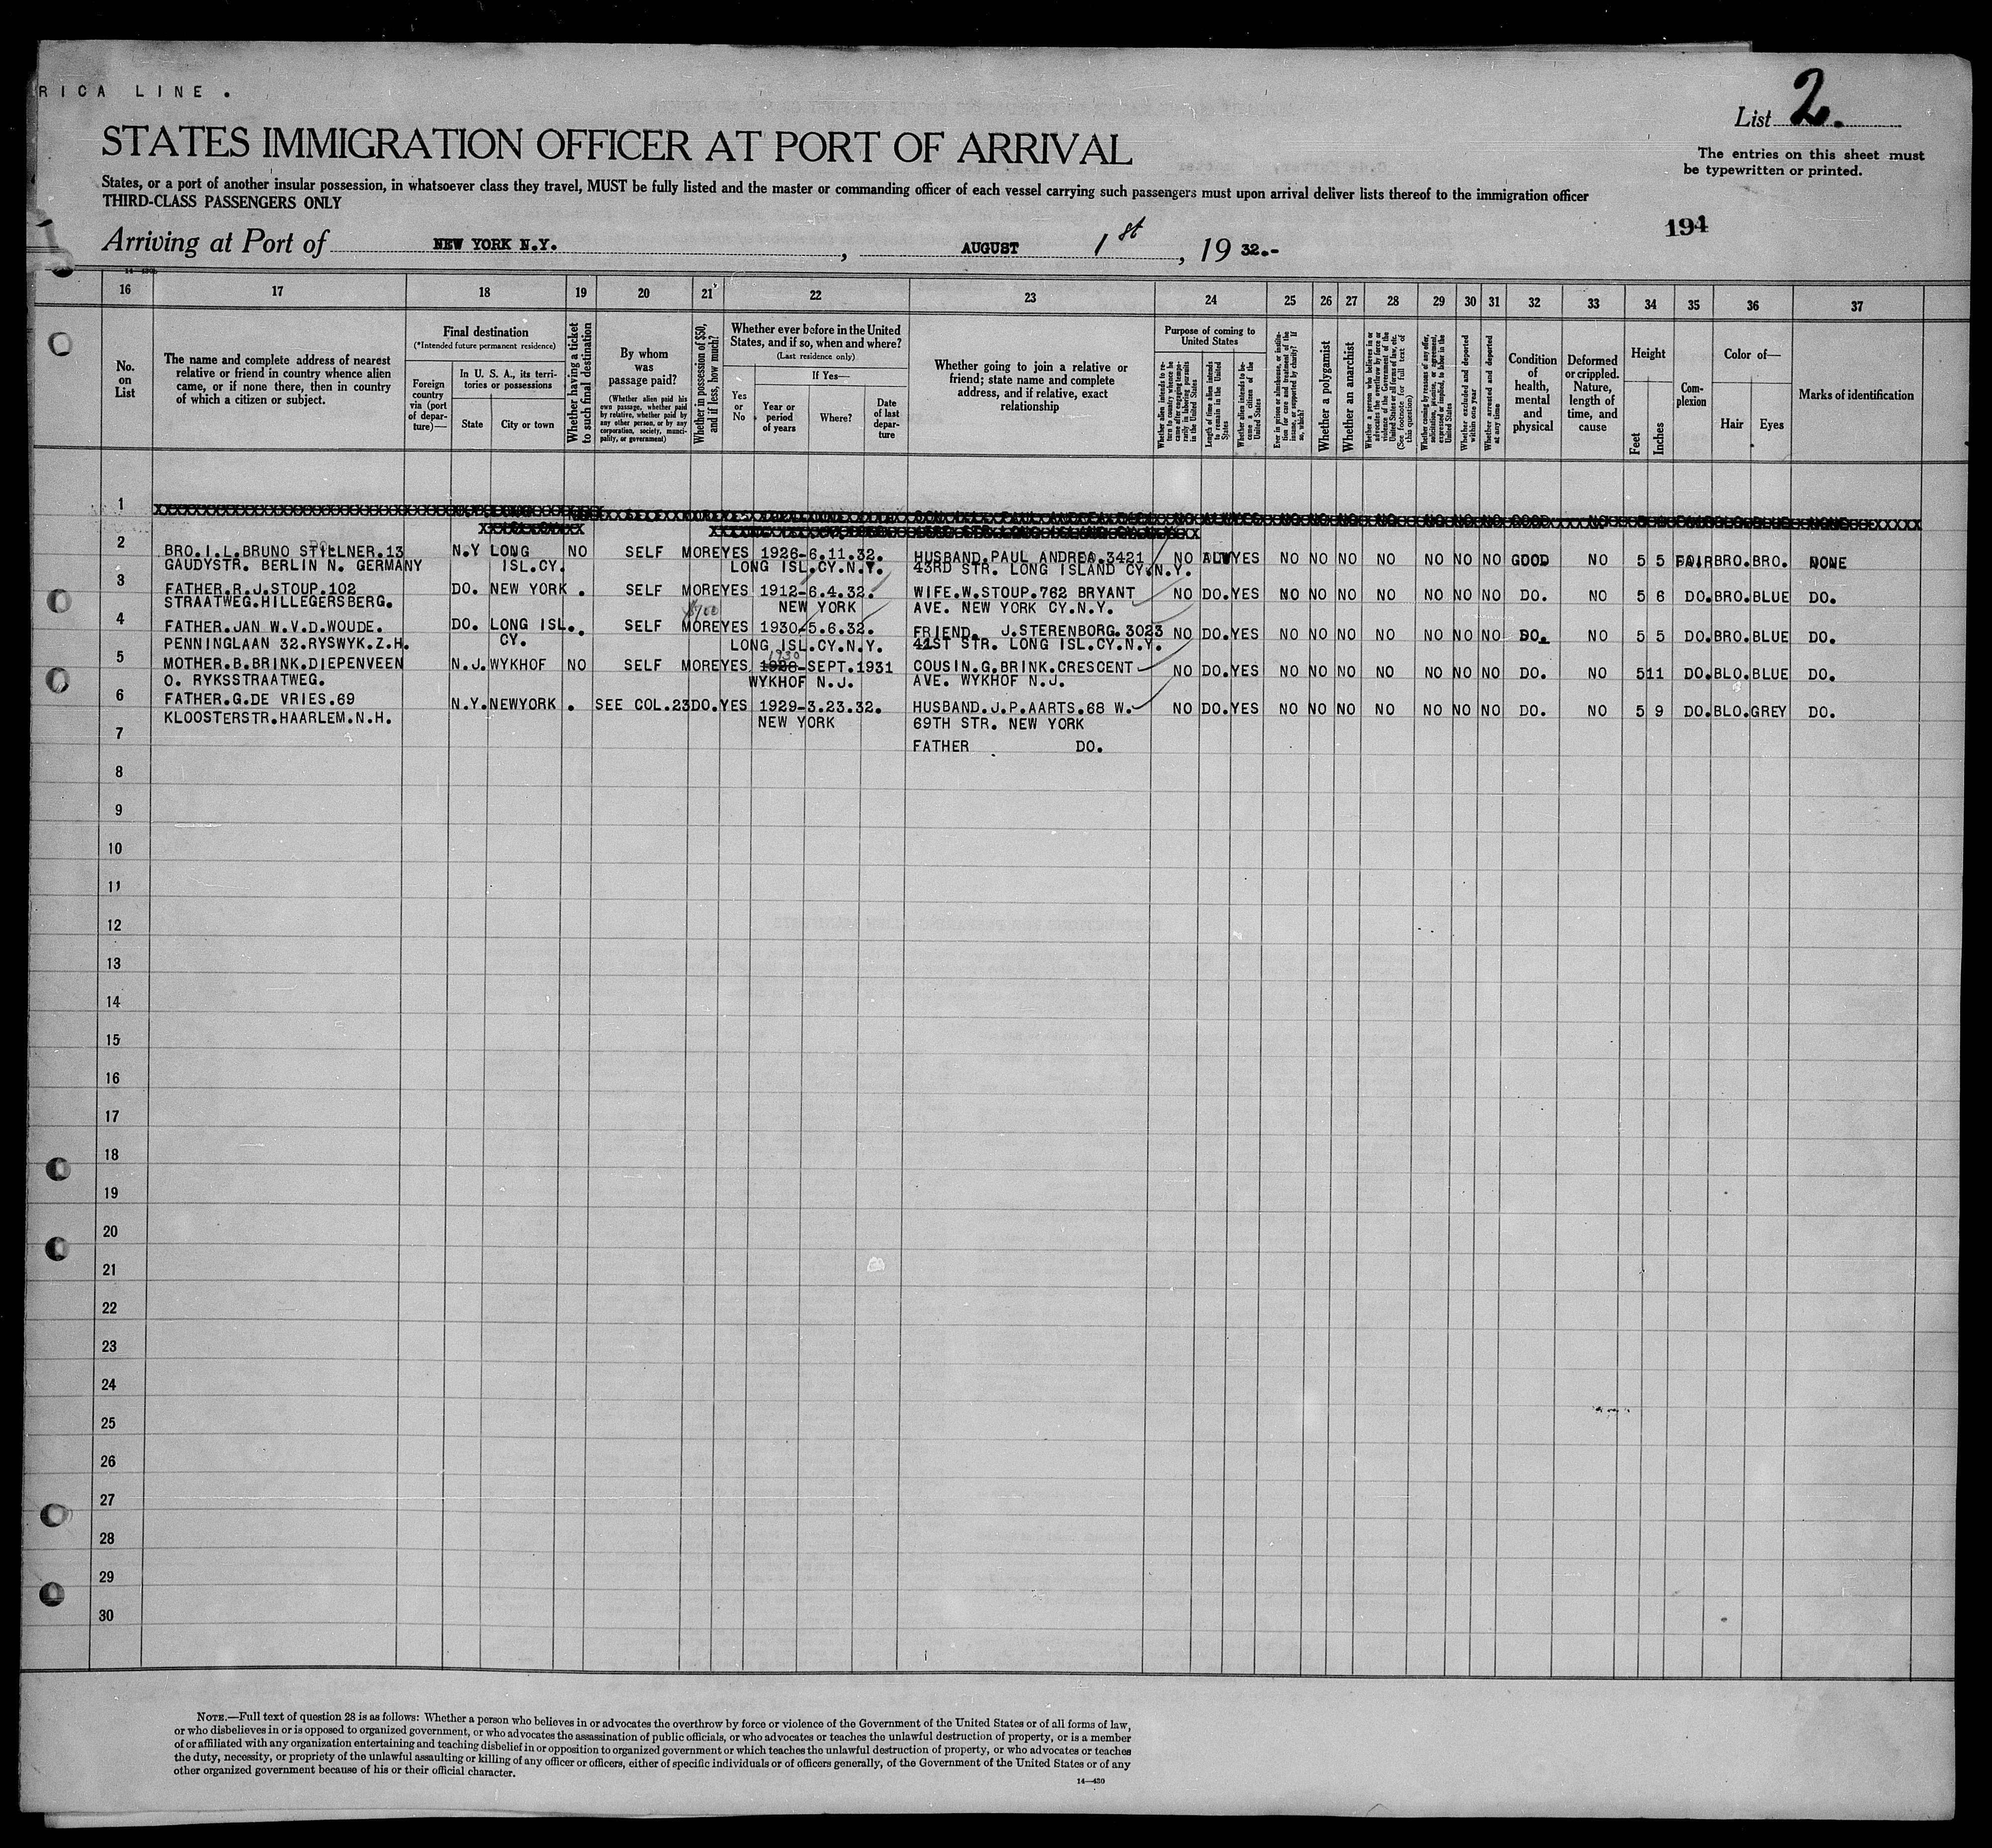 RICA LINE.
List 2.
STATES IMMIGRATION OFFICER AT PORT OF ARRIVAL
The entries on this sheet must
be typewritten or printed.
States, or a port of another insular possession, in whatsoever class they travel, MUST be fully listed and the master or commanding officer of each vessel carrying such passengers must upon arrival deliver lists thereof to the immigration officer
THIRD-CLASS PASSENGERS ONLY
194
Arriving at Port of NEW YORK N.Y. , AUGUST 1st , 19 32.-
16 17 18 19 20 21 22 23 24 25 26 27 28 29 30 31 32 33 34 35 36 37
No. on List
The name and complete address of nearest
relative or friend in country whence alien
came, or if none there, then in country
of which a citizen or subject.
Final destination
(*Intended future permanent residence)
Foreign
country
via (port
of depar-
ture)—
In U. S. A., its terri-
tories or possessions
State
City or town
Whether having a ticket
to such final destination
By whom
was
passage paid?
(Whether alien paid his
own passage, whether paid
by relative, whether paid by
any other person, or by any
corporation, society, munici-
pality, or government)
Whether in possession of $50,
and if less, how much?
Whether ever before in the United
States, and if so, when and where?
(Last residence only)
Yes
or
No
If Yes—
Year or
period
of years
Where?
Date
of last
depar-
ture
Whether going to join a relative or
friend; state name and complete
address, and if relative, exact
relationship
Purpose of coming to
United States
Whether alien intends to re-
turn to country whence he
came after engaging tempo-
rarily in laboring pursuits
in the United States
Length of time alien intends
to remain in the United
States
Whether alien intends to be-
come a citizen of the
United States
Ever in prison or almshouse, or institu-
tion for care and treatment of the
insane, or supported by charity? If
so, which?
Whether a polygamist
Whether an anarchist
Whether a person who believes in or
advocates the overthrow by force or
violence of the Government of the
United States or all forms of law, etc.
(See footnote for full text of
this question)
Whether coming by reasons of any offer,
solicitation, promise, or agreement,
expressed or implied, to labor in the
United States
Whether excluded and deported
within one year
Whether arrested and deported
at any time
Condition
of
health,
mental
and
physical
Deformed
or crippled.
Nature,
length of
time, and
cause
Height
Feet
Inches
Com-
plexion
Color of—
Hair
Eyes
Marks of identification
1
2
BRO.I.L.BRUNO STILLNER.13 N.Y LONG NO SELF MORE YES 1926-6.11.32. HUSBAND.PAUL ANDREA.3421 NO ALW YES NO NO NO NO NO NO NO GOOD NO 5 5 FAIR BRO. BRO. NONE
GAUDYSTR. BERLIN N. GERMANY ISL.CY. LONG ISL.CY.N.Y. 43RD STR. LONG ISLAND CY.N.Y.
3
FATHER.R.J.STOUP.102 DO. NEW YORK . SELF MORE YES 1912-6.4.32. WIFE.W.STOUP.762 BRYANT NO DO. YES NO NO NO NO NO NO NO DO. NO 5 6 DO. BRO. BLUE DO.
STRAATWEG.HILLEGERSBERG. NEW YORK AVE. NEW YORK CY.N.Y.
4
FATHER.JAN W.V.D.WOUDE. DO. LONG ISL. . SELF MORE YES 1930-5.6.32. FRIEND. J.STERENBORG.3023 NO DO. YES NO NO NO NO NO NO NO DO. NO 5 5 DO. BRO. BLUE DO.
PENNINGLAAN 32.RYSWYK.Z.H. CY. LONG ISL.CY.N.Y. 41ST STR. LONG ISL.CY.N.Y.
5
1930
MOTHER.B.BRINK.DIEPENVEEN N.J. WYKHOF NO SELF MORE YES 1928-SEPT.1931 COUSIN.G.BRINK.CRESCENT NO DO. YES NO NO NO NO NO NO NO DO. NO 5 11 DO. BLO. BLUE DO.
O. RYKSSTRAATWEG. WYKHOF N.J. AVE. WYKHOF N.J.
6
FATHER.G.DE VRIES.69 N.Y. NEWYORK . SEE COL.23 DO. YES 1929-3.23.32. HUSBAND.J.P.AARTS.68 W. NO DO. YES NO NO NO NO NO NO NO DO. NO 5 9 DO. BLO. GREY DO.
KLOOSTERSTR.HAARLEM.N.H. NEW YORK 69TH STR. NEW YORK
7
FATHER DO.
8
9
10
11
12
13
14
15
16
17
18
19
20
21
22
23
24
25
26
27
28
29
30
NOTE.—Full text of question 28 is as follows: Whether a person who believes in or advocates the overthrow by force or violence of the Government of the United States or of all forms of law,
or who disbelieves in or is opposed to organized government, or who advocates the assassination of public officials, or who advocates or teaches the unlawful destruction of property, or is a member
of or affiliated with any organization entertaining and teaching disbelief in or opposition to organized government or which teaches the unlawful destruction of property, or who advocates or teaches
the duty, necessity, or propriety of the unlawful assaulting or killing of any officer or officers, either of specific individuals or of officers generally, of the Government of the United States or of any
other organized government because of his or their official character.
14—430